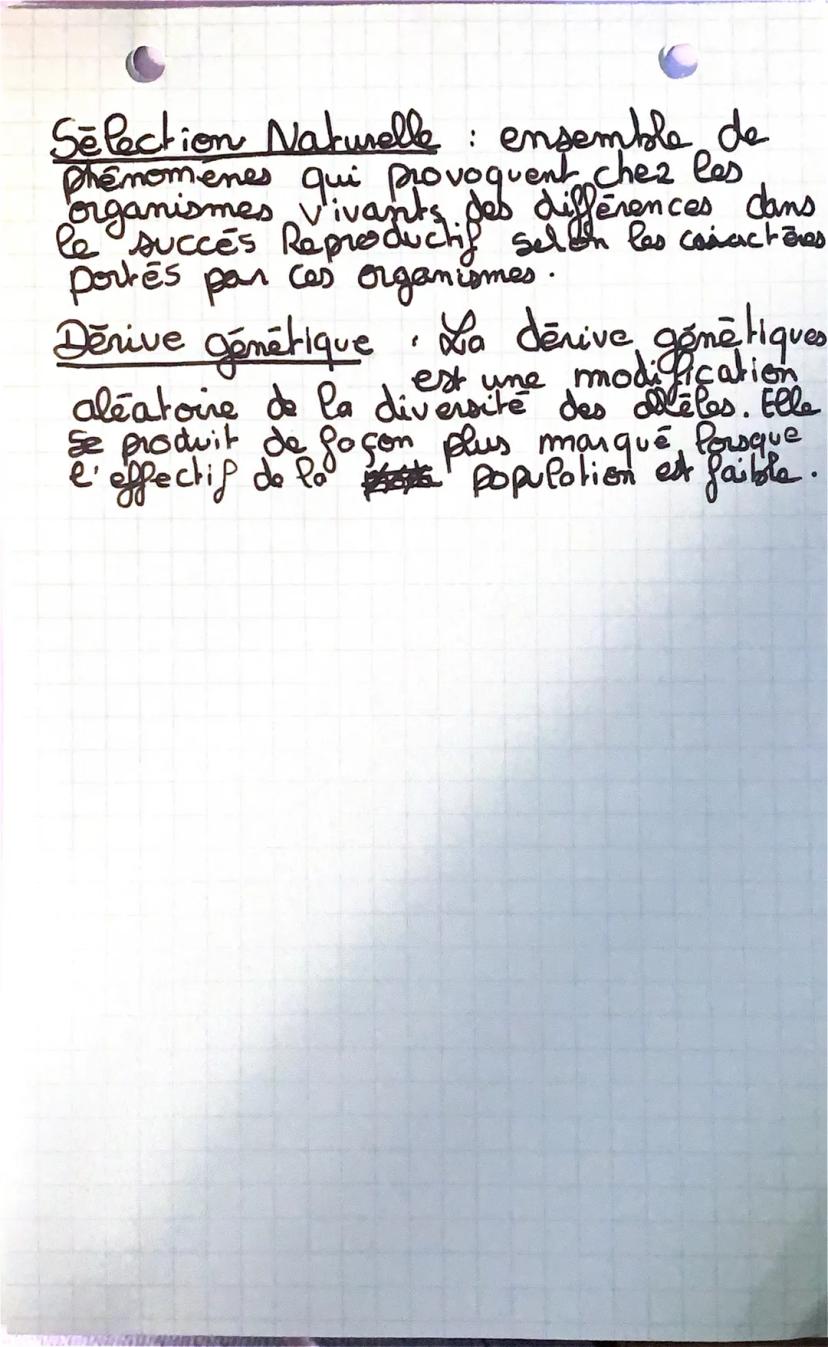 Sélection Naturelle : ensemble de
phénomènes qui provoquent chez les
organismes vivants des différences dans
le succés Reproductif selon les caractères
portés par ces organismes.
Dérive génétique : La dérive génétiques
est une modification
aléatoire de la diversité des allèles. Elle
se produit de façon plus marqué lorsque
l'effectif de la population est faible.